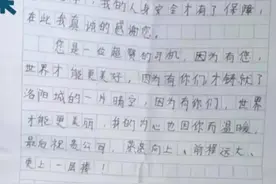 我的人身安全才有了保障,
在此我真诚的感谢您。
您是一位超赞的司机,因为有您,
世界才能更美好,因为有你们才铸就了
洛阳城的一片晴空,因为有你们,世界
才能更美丽,我的内心也因你而温暖。
最后祝贵公司,蒸蒸向上、前程远大、
更上一层楼!